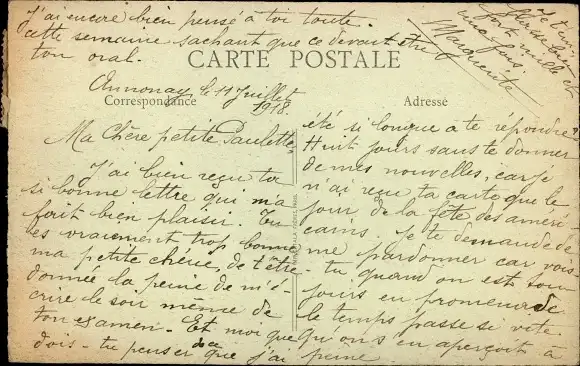 J'ai encore bien pensé à toi toute
cette semaine sachant que ce devait être
ton oral.
Je t'em
fort mille et
une fois.
Marguerite
CARTE POSTALE
Correspondance
Adresse
Annonay le 11 Juillet
1918.
Ma Chère petite Paulette
J'ai bien reçu ta
si bonne lettre qui m'a
fait bien plaisir. Tu
es vraiment trop bonne
ma petite chérie, de t'être
donnée la peine de m'é-
crire le soir même de
ton examen. Et moi que
dois-tu penser de ce que j'ai
été si longue à te répondre?
Huit jours sans te donner
de mes nouvelles, car je
n'ai reçu ta carte que le
jour de la fête des améri-
cains. Je te demande de
me pardonner car vois-
tu quand on est tou-
jours en promenade
le temps passe si vite
qu'on s'en aperçoit à
peine